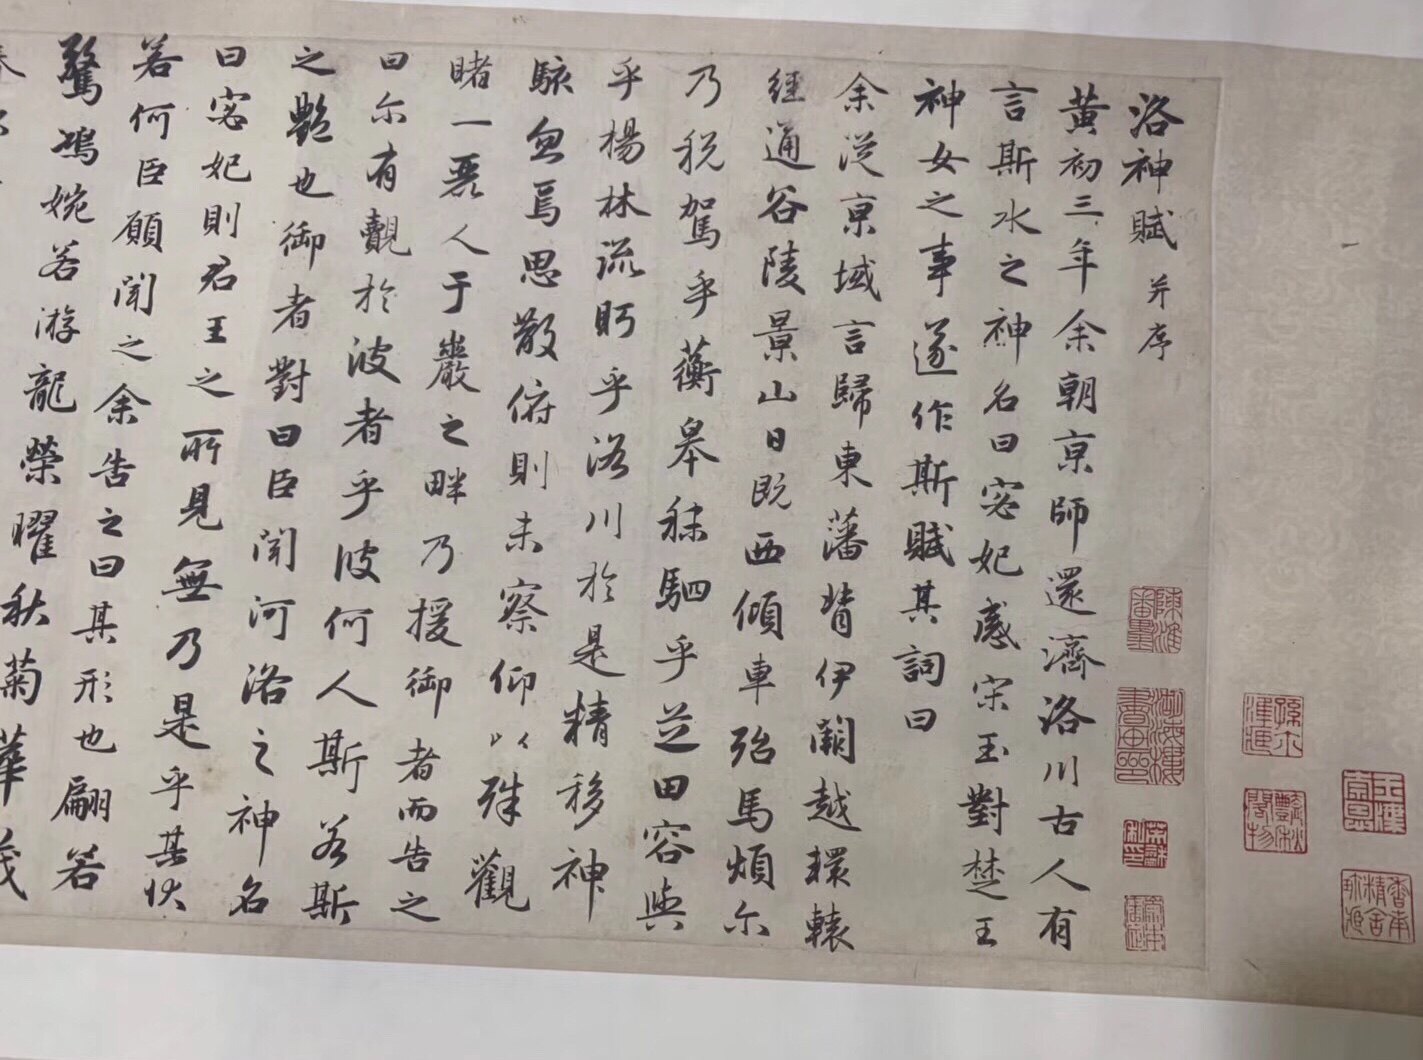 洛神賦 并序
黄初三年余朝京師還濟洛川古人有
言斯水之神名曰宓妃感宋玉對楚王
神女之事遂作斯賦其詞曰
余從京域言歸東藩背伊闕越轘轅
經通谷陵景山日既西傾車殆馬煩尔
乃税駕乎蘅皋秣駟乎芝田容與
乎楊林流眄乎洛川於是精移神
駭忽焉思散俯則未察仰以殊觀
睹一麗人于巖之畔乃援御者而告之
曰尔有覿於彼者乎彼何人斯若斯
之艷也御者對曰臣聞河洛之神名
曰宓妃則君王之所見無乃是乎其狀
若何臣願聞之余告之曰其形也翩若
驚鴻婉若游龍榮曜秋菊華茂